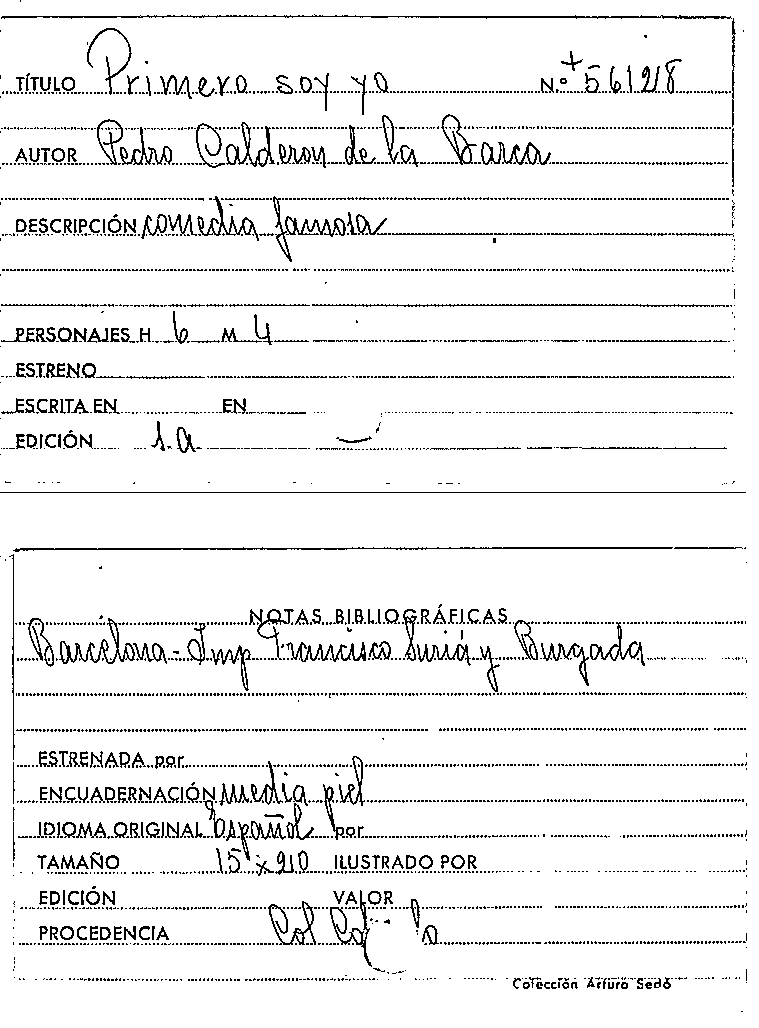 TÍTULO Primero soy yo N.º + 56128
AUTOR Pedro Calderon de la Barca
DESCRIPCIÓN comedia famosa
PERSONAJES H 6 M 4
ESTRENO
ESCRITA EN EN
EDICIÓN s.a
NOTAS BIBLIOGRÁFICAS
Barcelona - Imp Francisco Suriá y Burgada
ESTRENADA por
ENCUADERNACIÓN media piel
IDIOMA ORIGINAL Español por
TAMAÑO 15 x 20 ILUSTRADO POR
EDICIÓN VALOR
PROCEDENCIA Col
Colección Arturo Sedó